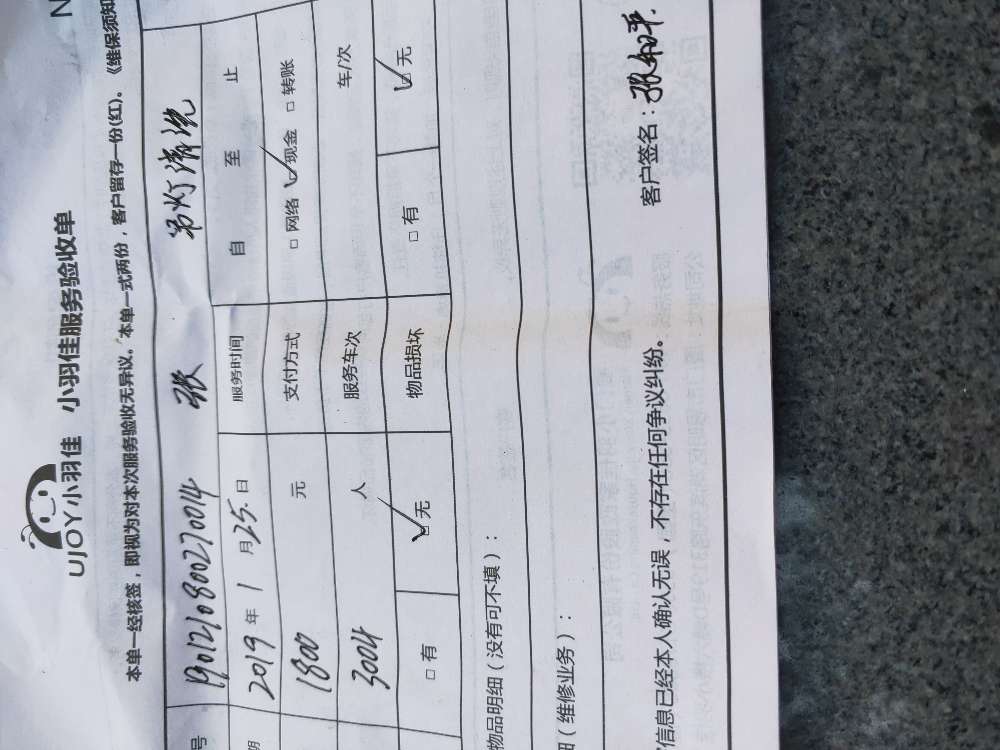 N
UJOY小羽佳 小羽佳服务验收单
本单一经核签，即视为对本次服务验收无异议。本单一式两份，客户留存一份(红)。《维保须知
号 1901210800270014 张 吊灯清洗
期 2019 年 1 月 25. 日 服务时间 自 至 止
1800 元 支付方式 □ 网络 ☑ 现金 □ 转账
3004 人 服务车次 车/次
□ 有 ☑ 无 物品损坏 □ 有 ☑ 无
物品明细（没有可不填）：
（维修业务）：
信息已经本人确认无误，不存在任何争议纠纷。 客户签名：